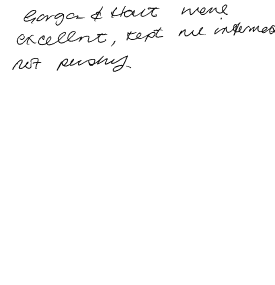 Gargan & Hart were
excellent, kept me informed
not pushy.